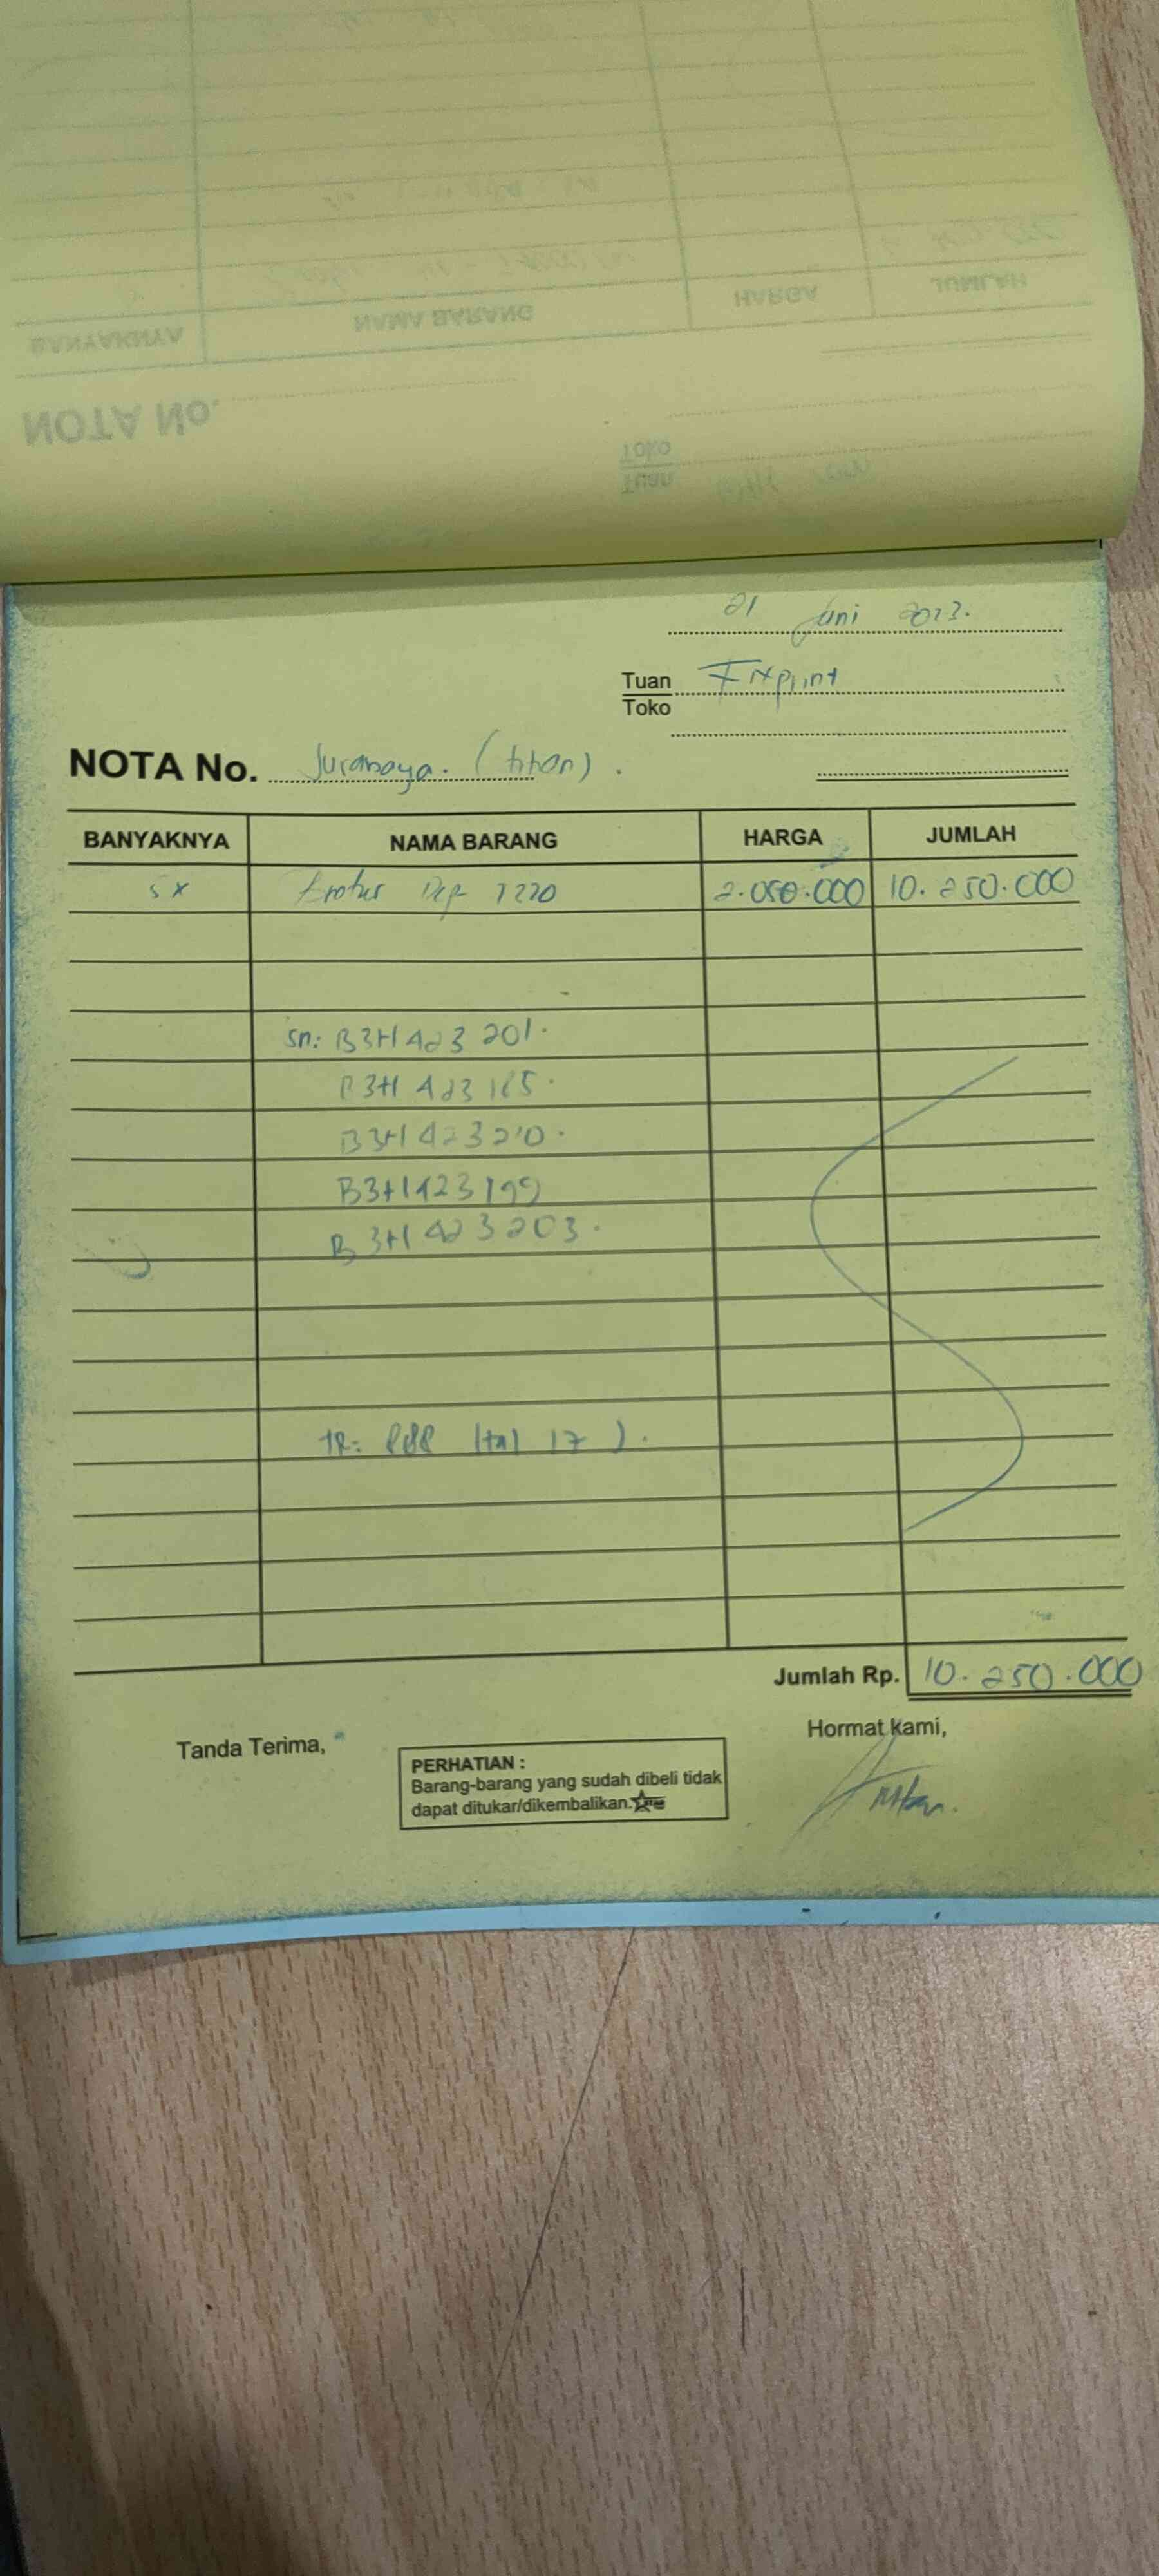 BANYAKNYA NAMA BARANG HARGA JUMLAH
NOTA No.
Toko
Tuan
21 Juni 2023.
Tuan Fixprint
Toko
NOTA No. Surabaya. (titon).
BANYAKNYA NAMA BARANG HARGA JUMLAH
5x Brother Dcp T220 2.050.000 10.250.000
sn: B3H423201.
B3H423185.
B3H423210.
B3H423199
B3H423203.
TR: 888 (tgl 17).
Jumlah Rp. 10.250.000
Tanda Terima,
Hormat kami,
PERHATIAN :
Barang-barang yang sudah dibeli tidak
dapat ditukar/dikembalikan.